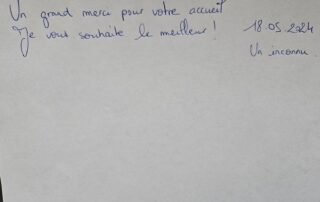 Un grand merci pour votre accueil
Je vous souhaite le meilleur !
18.05.2024
Un inconnu